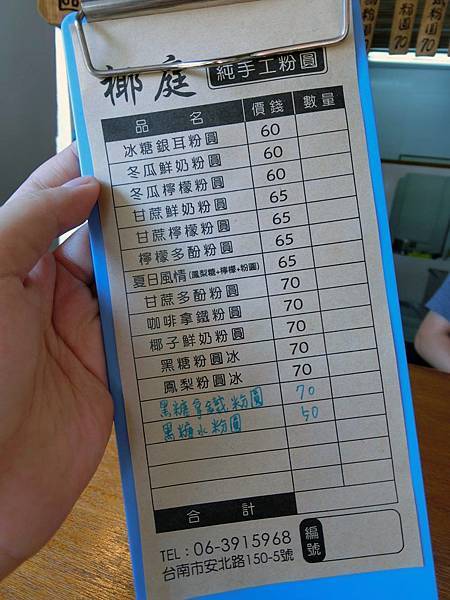 椰庭 純手工粉圓
品名 價錢 數量
冰糖銀耳粉圓 60
冬瓜鮮奶粉圓 60
冬瓜檸檬粉圓 60
甘蔗鮮奶粉圓 65
甘蔗檸檬粉圓 65
檸檬多酚粉圓 65
夏日風情(鳳梨糖+檸檬+粉圓) 65
甘蔗多酚粉圓 70
咖啡拿鐵粉圓 70
椰子鮮奶粉圓 70
黑糖粉圓冰 70
鳳梨粉圓冰 70
黑糖拿鐵粉圓 70
黑糖水粉圓 50
合計
TEL：06-3915968
台南市安北路150-5號
編號
粉圓 70